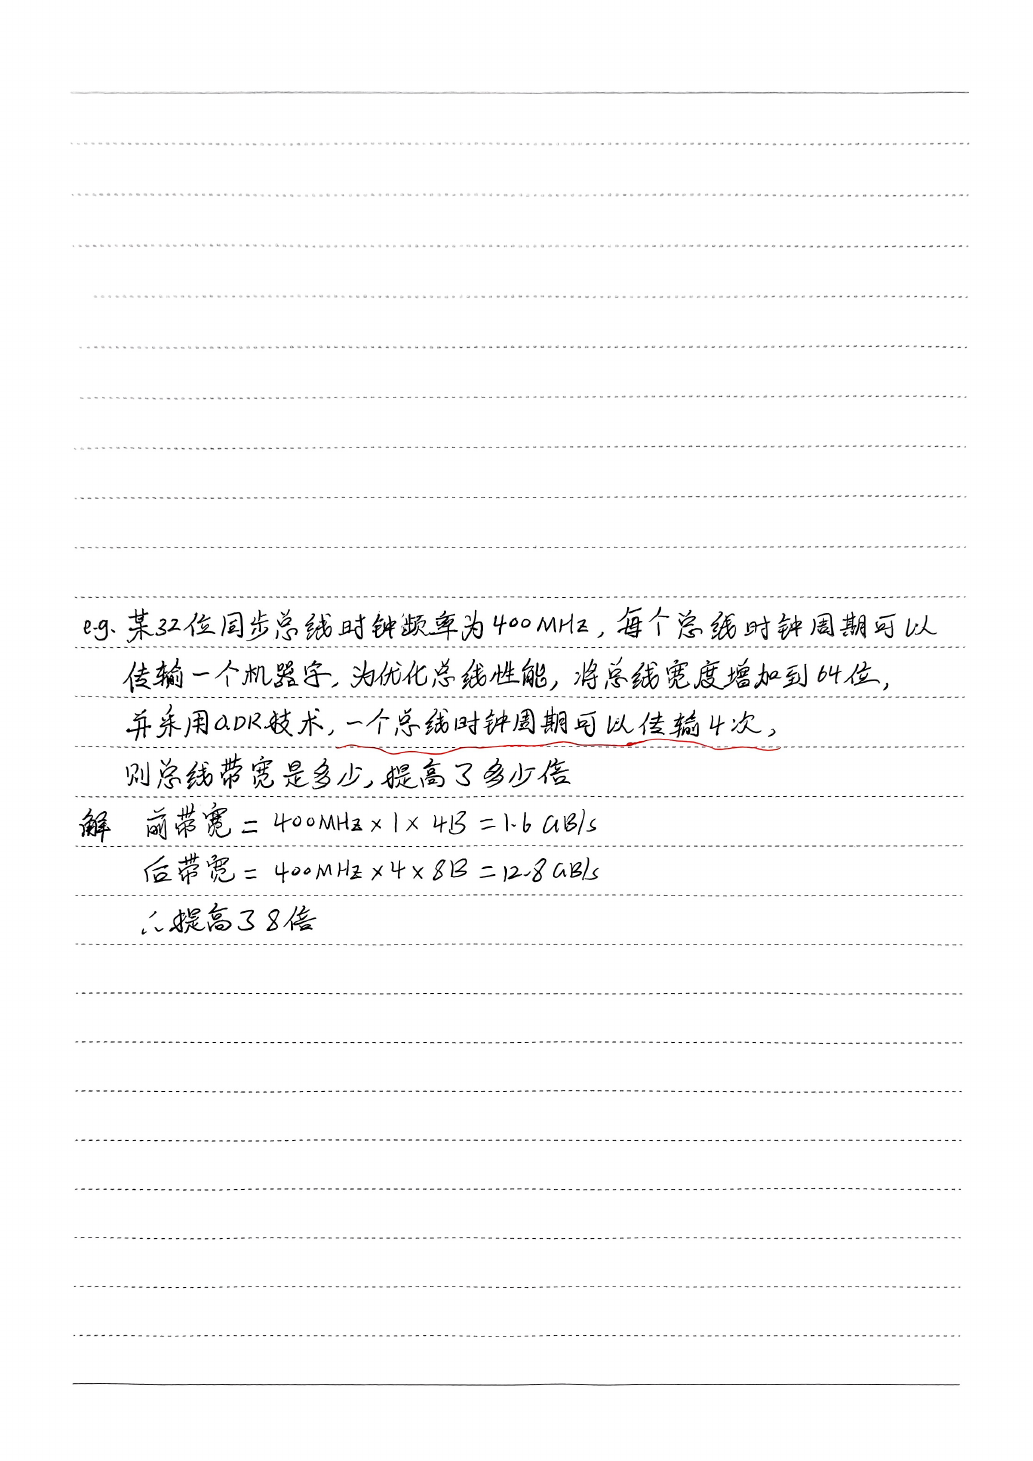 e.g. 某32位同步总线时钟频率为400MHz，每个总线时钟周期可以
传输一个机器字，为优化总线性能，将总线宽度增加到64位，
并采用QDR技术，一个总线时钟周期可以传输4次，
则总线带宽是多少，提高了多少倍
解 前带宽=400MHz×1×4B=1.6GB/s
后带宽=400MHz×4×8B=12.8GB/s
∴提高了8倍